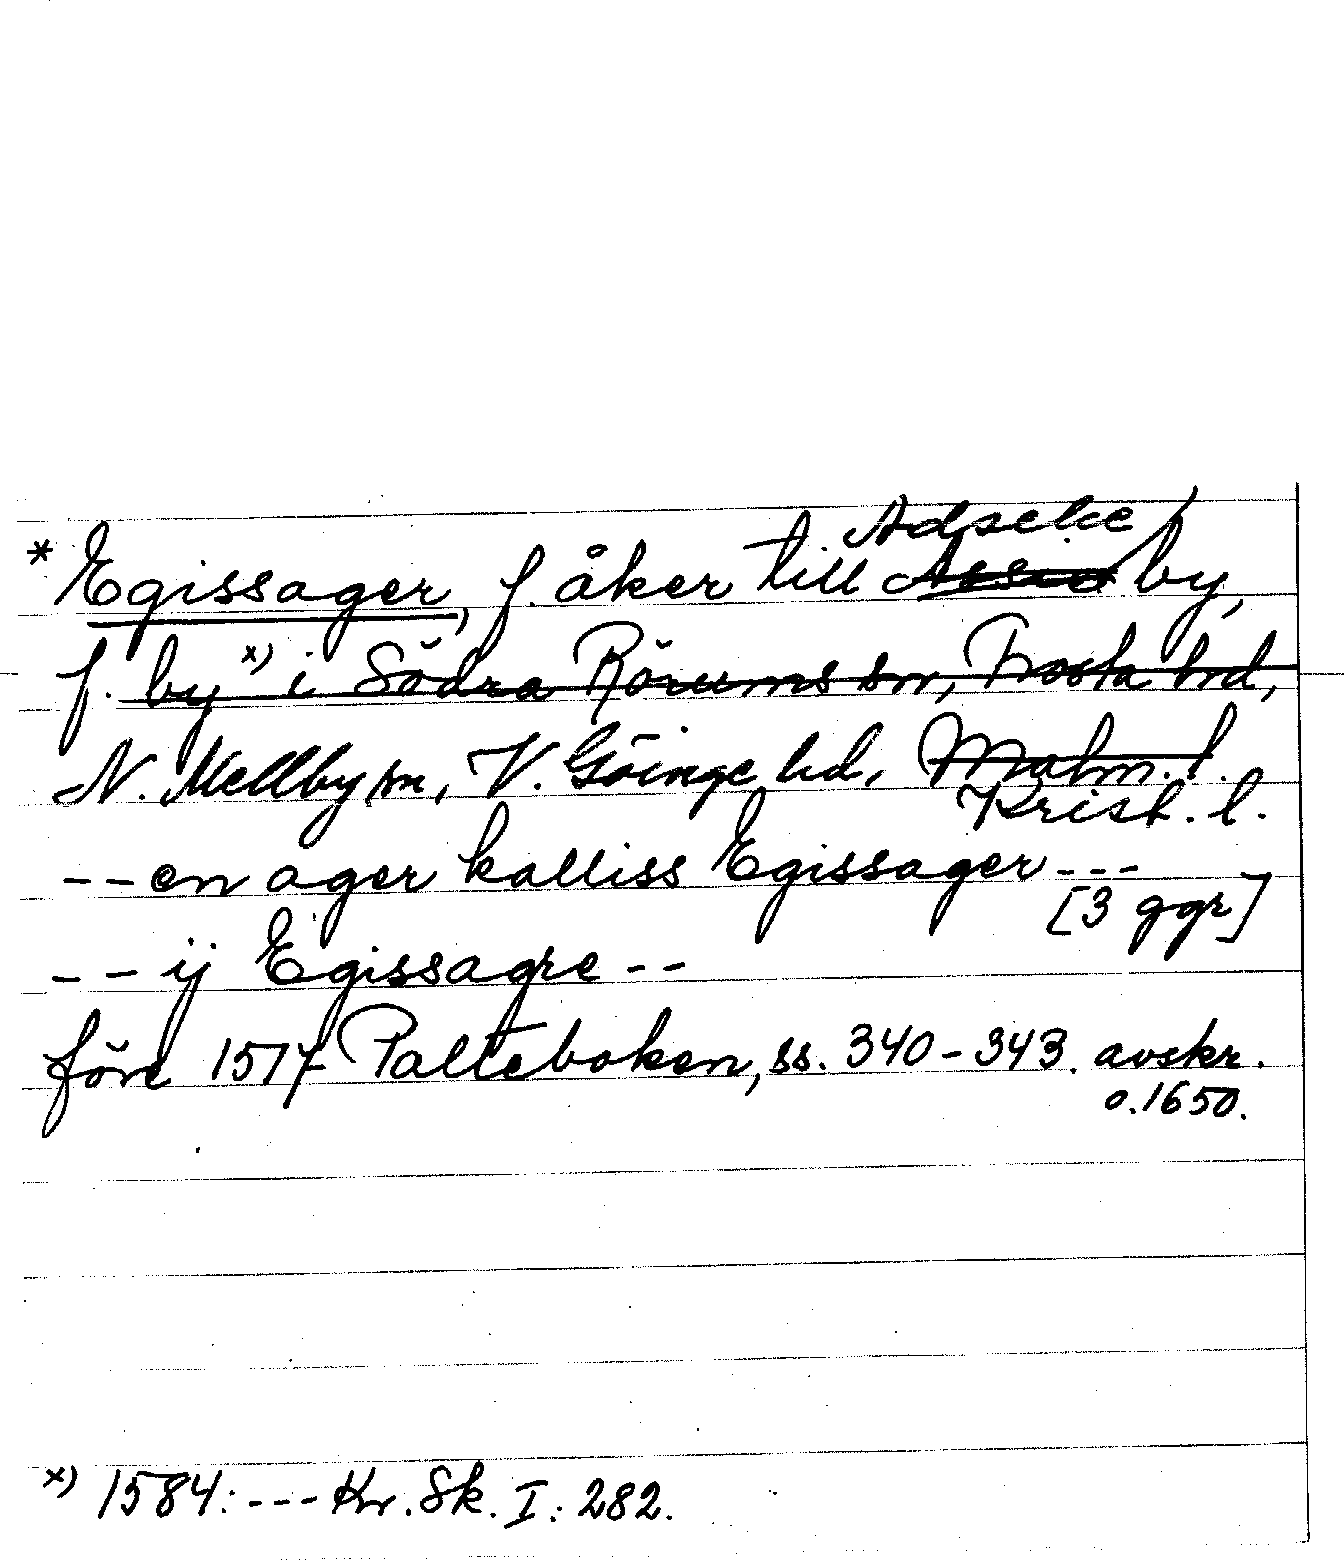 Adseke
* Egissager, f. åker till by,
f. by x) i Södra Rörums sn, Frosta hd,
N. Mellby sn, V. Göinge hd, Malm. l.
Krist. l.
-- en ager kalliss Egissager ---
[3 ggr]
-- ij Egissagre --
före 1517 Palteboken, ss. 340-343. avskr.
o. 1650.
x) 1584: --- Kr. Sk. I: 282.